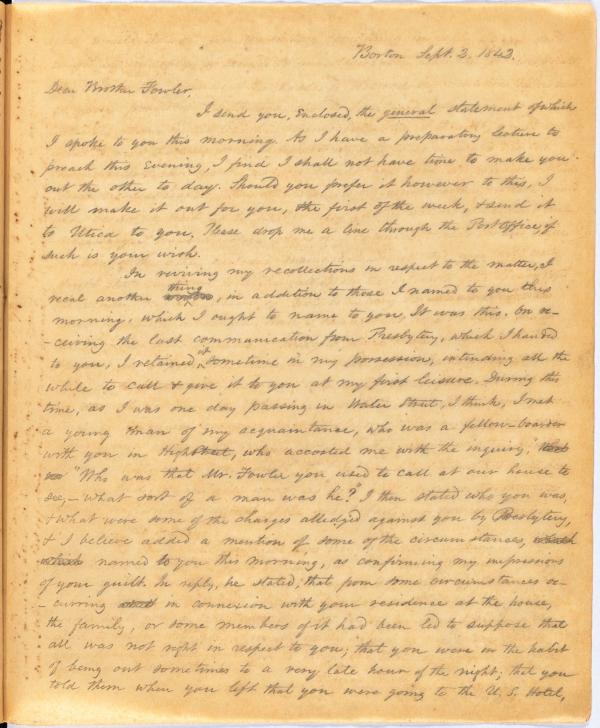 Boston Sept. 2. 1842.
Dear Brother Fowler,
I send you, enclosed, the general statement of which
I spoke to you this morning. As I have a preparatory lecture to
preach this Evening, I find I shall not have time to make you
out the other to day. Should you prefer it however to this, I
will make it out for you, the first of the week, & send it
to Utica to you. Please drop me a line through the Post office if
such is your wish.
In reviving my recollections in respect to the matter, I
recal another thing, in addition to those I named to you this
morning, which I ought to name to you. It was this. On re-
-ceiving the last communication from Presbytery, which I handed
to you, I retained it sometime in my possession, intending all the
while to call & give it to you at my first leisure. During this
time, as I was one day passing in Water Street, I think, I met
a young man of my acquaintance, who was a fellow-boarder
with you in High Street, who accosted me with the inquiry,
"Who was that Mr. Fowler you used to call at our house to
see, – what sort of a man was he?" I then stated who you was,
& what were some of the charges alledged against you by Presbytery,
& I believe added a mention of some of the circumstances,
named to you this morning, as confirming my impressions
of your guilt. In reply, he stated, that from some circumstances oc-
-curring in connexion with your residence at the house,
the family, or some members of it had been led to suppose that
all was not right in respect to you; that you were in the habit
of being out sometimes to a very late hour of the night; that you
told them when you left that you were going to the U. S. Hotel,